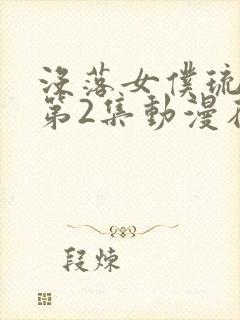 沒落女僕琉
第2集動漫在
段煉